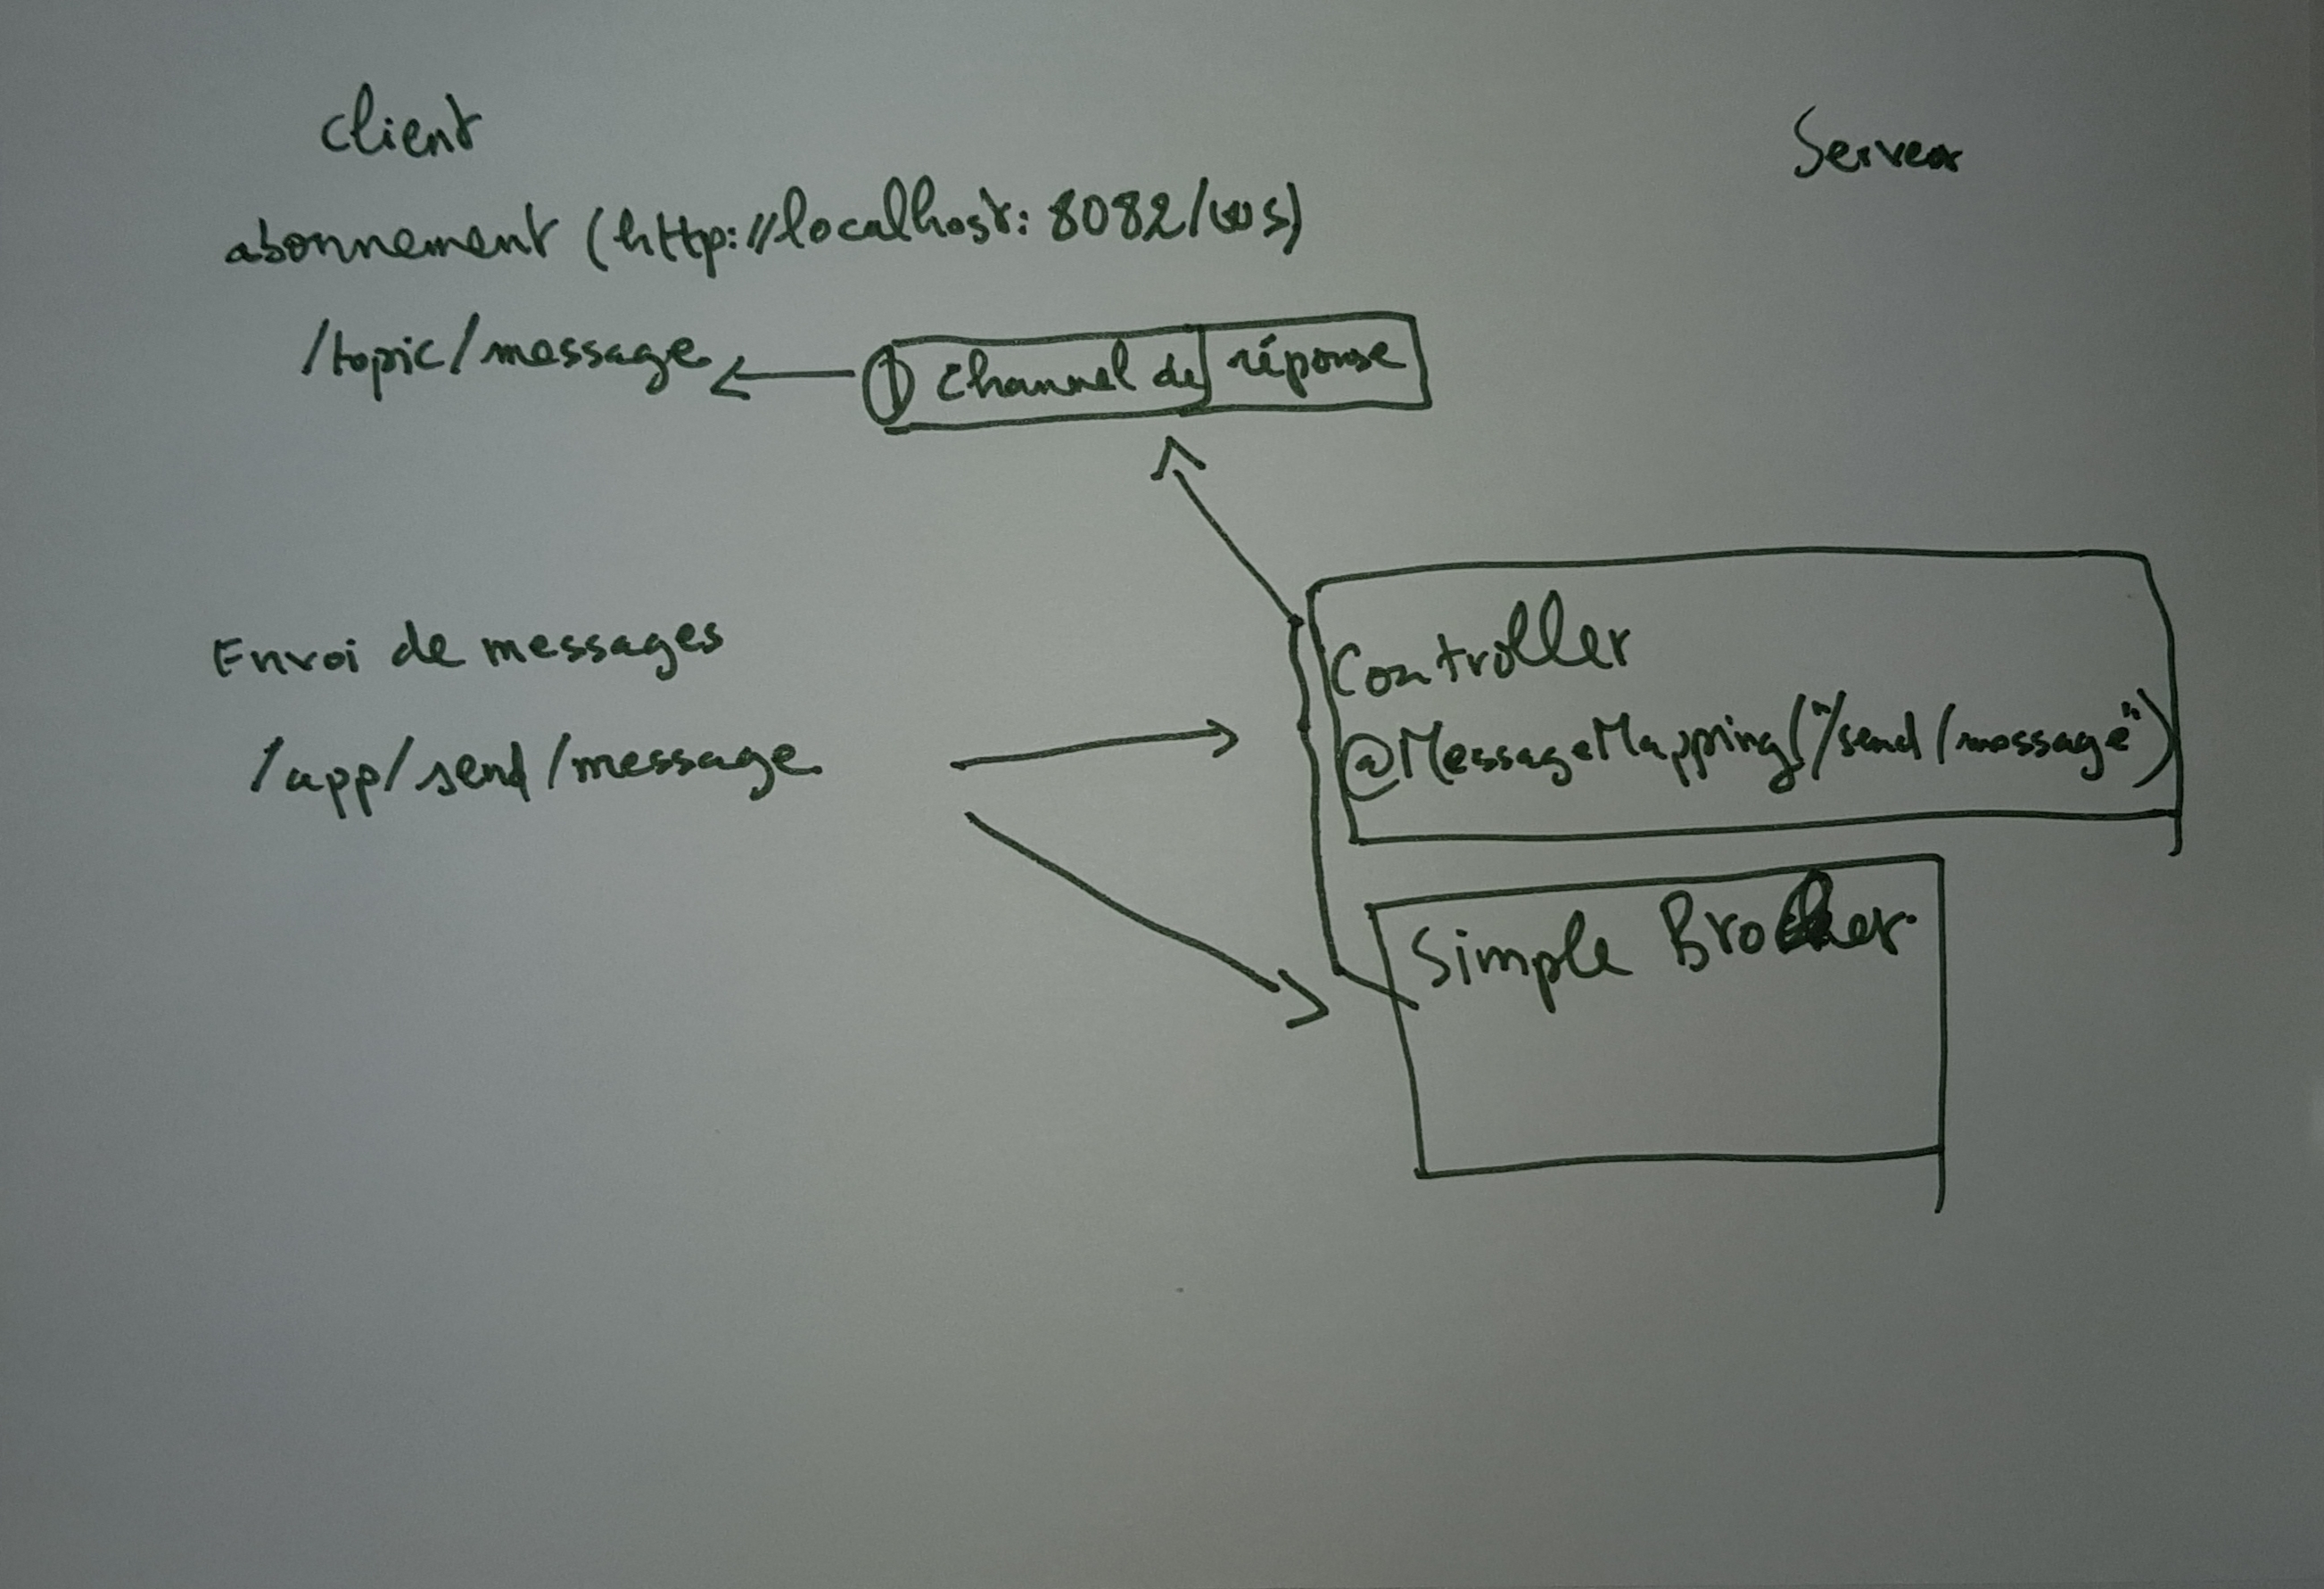 Client
Server
abonnement (http://localhost:8082/ws)
/topic/message
① Channel de réponse
Envoi de messages
/app/send/message
Controller
@MessageMapping("/send/message")
Simple Broker